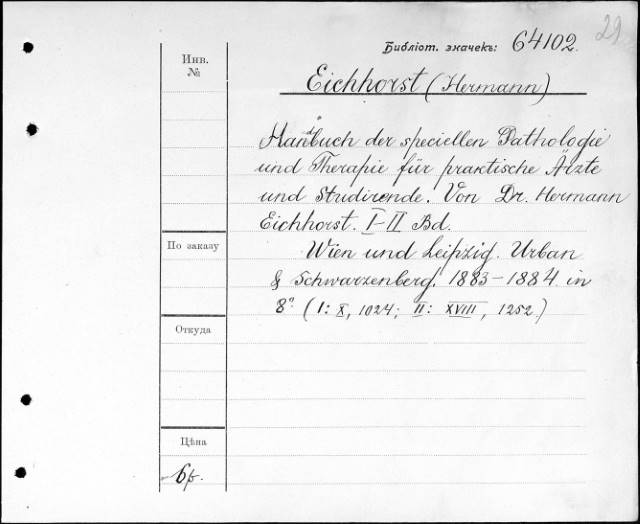 29
Библіот. значекъ: 64102.
Инв.
№
Eichhorst (Hermann)
Handbuch der speciellen Pathologie
und Therapie für praktische Ärzte
und Studirende. Von Dr. Hermann
Eichhorst. I–II Bd.
Wien und Leipzig. Urban
& Schwarzenberg. 1883–1884. in
8°. (I: X, 1024; II: XVIII, 1252.)
По заказу
Откуда
Цѣна
6р.